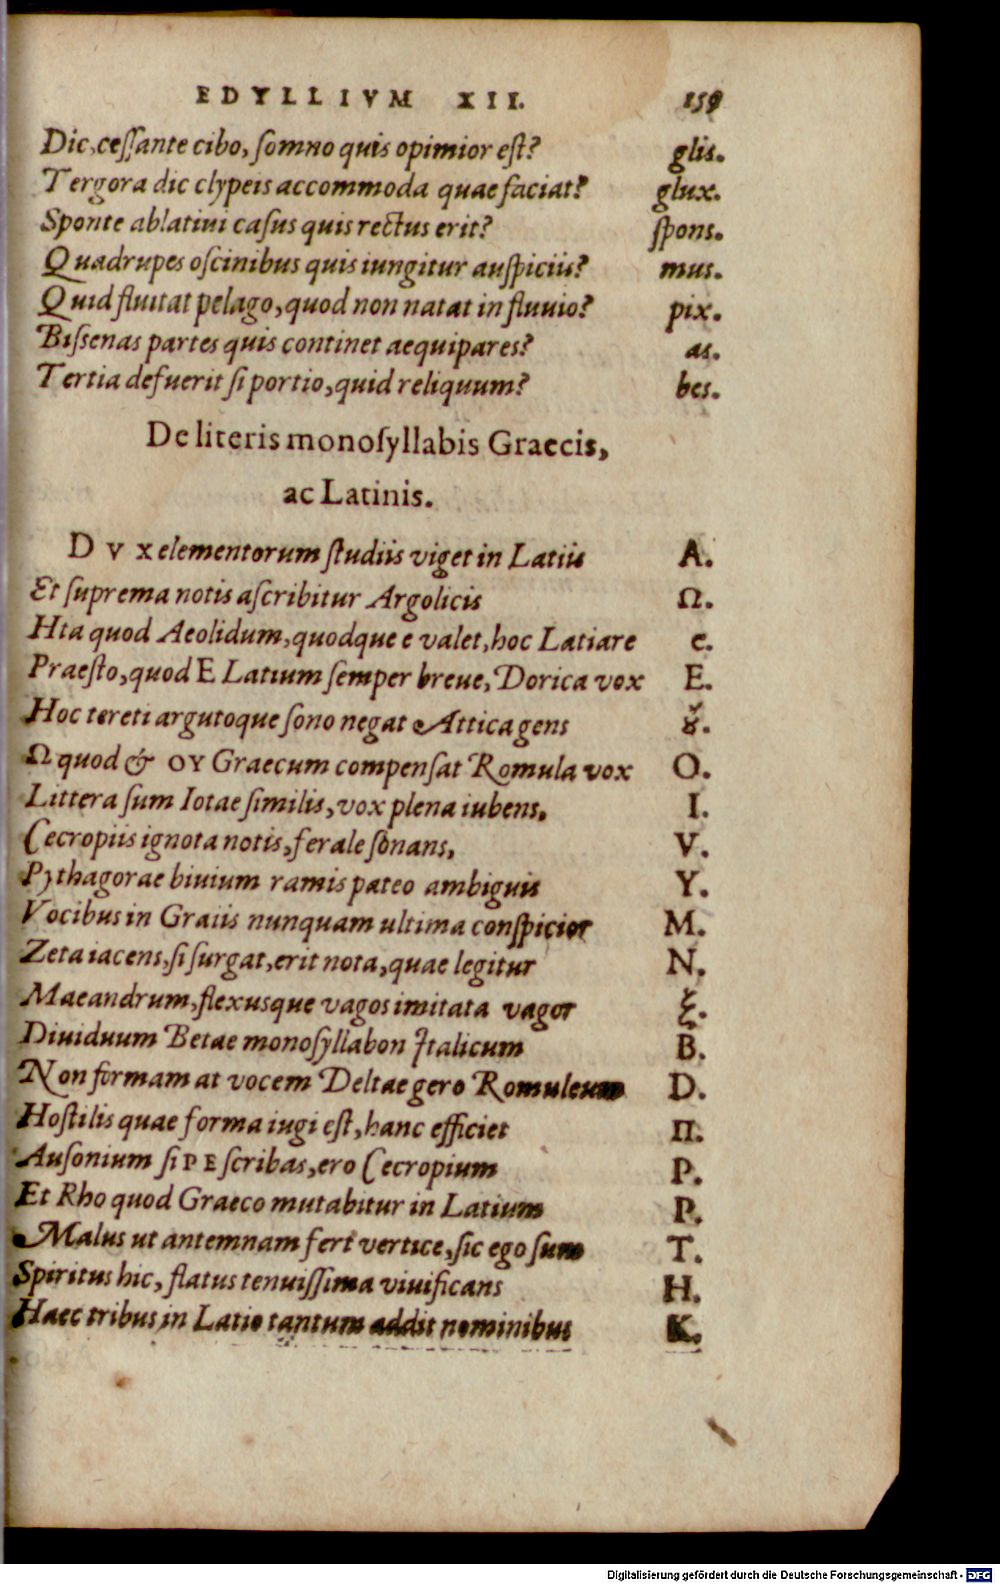 EDYLLIVM XII. 159
Dic, ceſſante cibo, ſomno quis opimior eſt? glis.
Tergora dic clypeis accommoda quae faciat? glux.
Sponte ablatiui caſus quis rectus erit? ſpons.
Quadrupes oſcinibus quis iungitur auſpiciis? mus.
Quid fluitat pelago, quod non natat in fluuio? pix.
Biſſenas partes quis continet aequipares? as.
Tertia defuerit ſi portio, quid reliquum? bes.
De literis monoſyllabis Graecis,
ac Latinis.
DVX elementorum ſtudiis viget in Latiis A.
Et ſuprema notis aſcribitur Argolicis Ω.
Hta quod Aeolidum, quodque e valet, hoc Latiare e.
Praeſto, quod E Latium ſemper breue, Dorica vox E.
Hoc tereti argutoque ſono negat Attica gens ȣ.
Ω quod & ΟΥ Graecum compenſat Romula vox O.
Littera ſum Iotae ſimilis, vox plena iubens. I.
Cecropiis ignota notis, ferale ſonans, V.
Pythagorae biuium ramis pateo ambiguis Y.
Vocibus in Graiis nunquam ultima conſpicior M.
Zeta iacens, ſi ſurgat, erit nota, quae legitur N.
Maeandrum, flexusque vagos imitata vagor ξ.
Diuiduum Betae monoſyllabon Italicum B.
Non formam at vocem Deltae gero Romuleum D.
Hoſtilis quae forma iugi eſt, hanc efficiet Π.
Auſonium ſi PE ſcribas, ero Cecropium P.
Et Rho quod Graeco mutabitur in Latium P.
Malus ut antemnam fert vertice, ſic ego ſum T.
Spiritus hic, flatus tenuiſſima viuificans H.
Haec tribus in Latio tantum addit nominibus K.
Digitalisierung gefördert durch die Deutsche Forschungsgemeinschaft - DFG